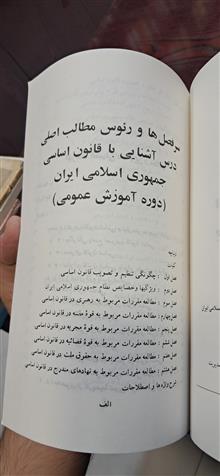 سرفصل ها و رئوس مطالب اصلی
درس آشنایی با قانون اساسی
جمهوری اسلامی ایران
(دوره آموزش عمومی)
کلیات
فصل اول : چگونگی تنظیم و تصویب قانون اساسی
فصل دوم : ویژگیها و خصایص نظام جمهوری اسلامی ایران
فصل سوم : مطالعه مقررات مربوط به رهبری در قانون اساسی
فصل چهارم : مطالعه مقررات مربوط به قوهٔ مقننه در قانون اساسی
فصل پنجم : مطالعه مقررات مربوط به قوهٔ مجریه در قانون اساسی
فصل ششم : مطالعه مقررات مربوط به قوهٔ قضائیه در قانون اساسی
فصل هفتم : مطالعه مقررات مربوط به حقوق ملت در قانون اساسی
فصل هشتم : مطالعه مقررات مربوط به نهادهای مندرج در قانون اساسی
شرح واژه ها و اصطلاحات
الف
اسلامی ایران
مدیریت